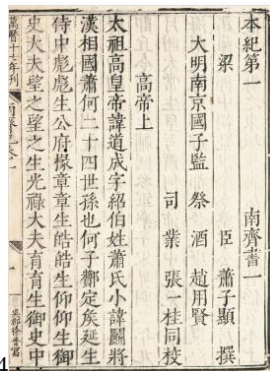 本紀第一 南齊書一
梁 臣 蕭子顯 撰
大明南京國子監 祭酒 趙用賢
司業 張一桂同校
高帝上
太祖高皇帝諱道成字紹伯姓蕭氏小諱鬬將
漢相國蕭何二十四世孫也何子酇定矦延生
侍中彪彪生公府掾章章生皓皓生仰仰生御
史大夫望之望之生光祿大夫育育生御史中
萬曆十七年刊
一
4